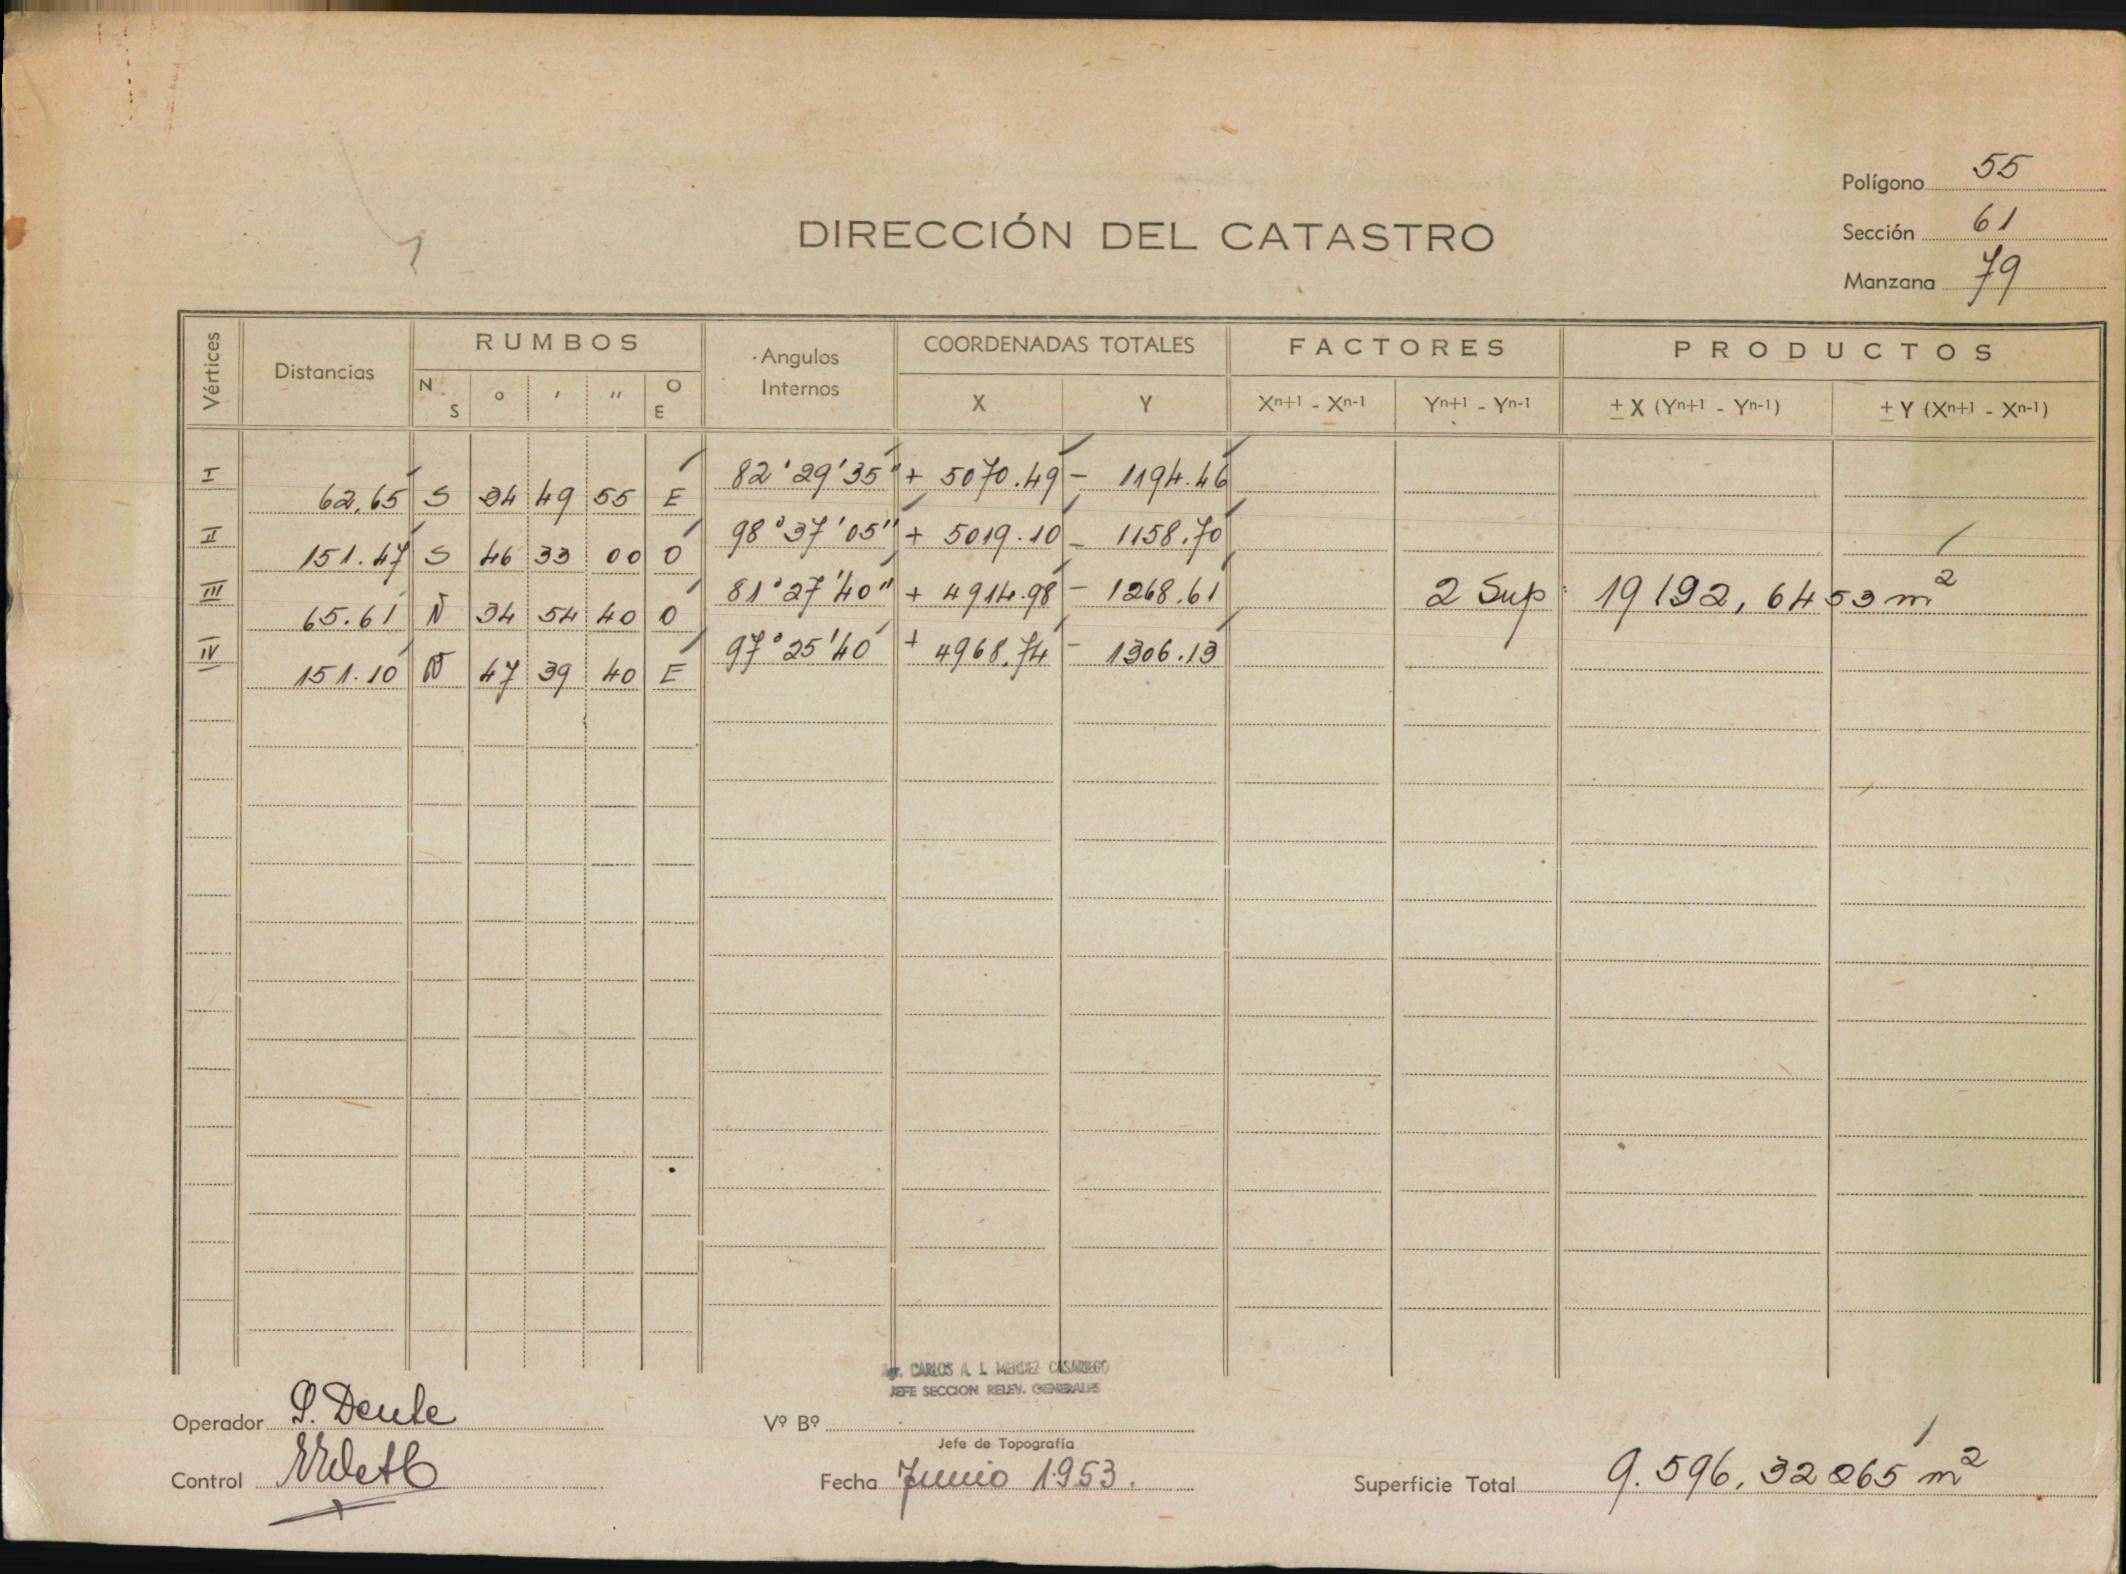 Polígono 55
DIRECCIÓN DEL CATASTRO
Sección 61
Manzana 79
Vértices Distancias RUMBOS Angulos Internos COORDENADAS TOTALES FACTORES PRODUCTOS
N S ° ' " O E X Y Xn+1 - Xn-1 Yn+1 - Yn-1 ± X (Yn+1 - Yn-1) ± Y (Xn+1 - Xn-1)
I 82°29'35" + 5070.49 - 1194.46
62.65 S 34 49 55 E
II 98°37'05" + 5019.10 - 1158.70
151.47 S 46 33 00 O
III 81°27'40" + 4914.98 - 1268.61 2 Sup: 19192,6453 m²
65.61 N 34 54 40 O
IV 97°25'40 + 4968.74 - 1306.13
151.10 N 47 39 40 E
Agr. CARLOS A. L. MENDEZ CASARIEGO
JEFE SECCION RELEV. GENERALES
Operador Dente
Vº Bº
Jefe de Topografía
Control
Fecha Junio 1953.
Superficie Total 9.596,32265 m²